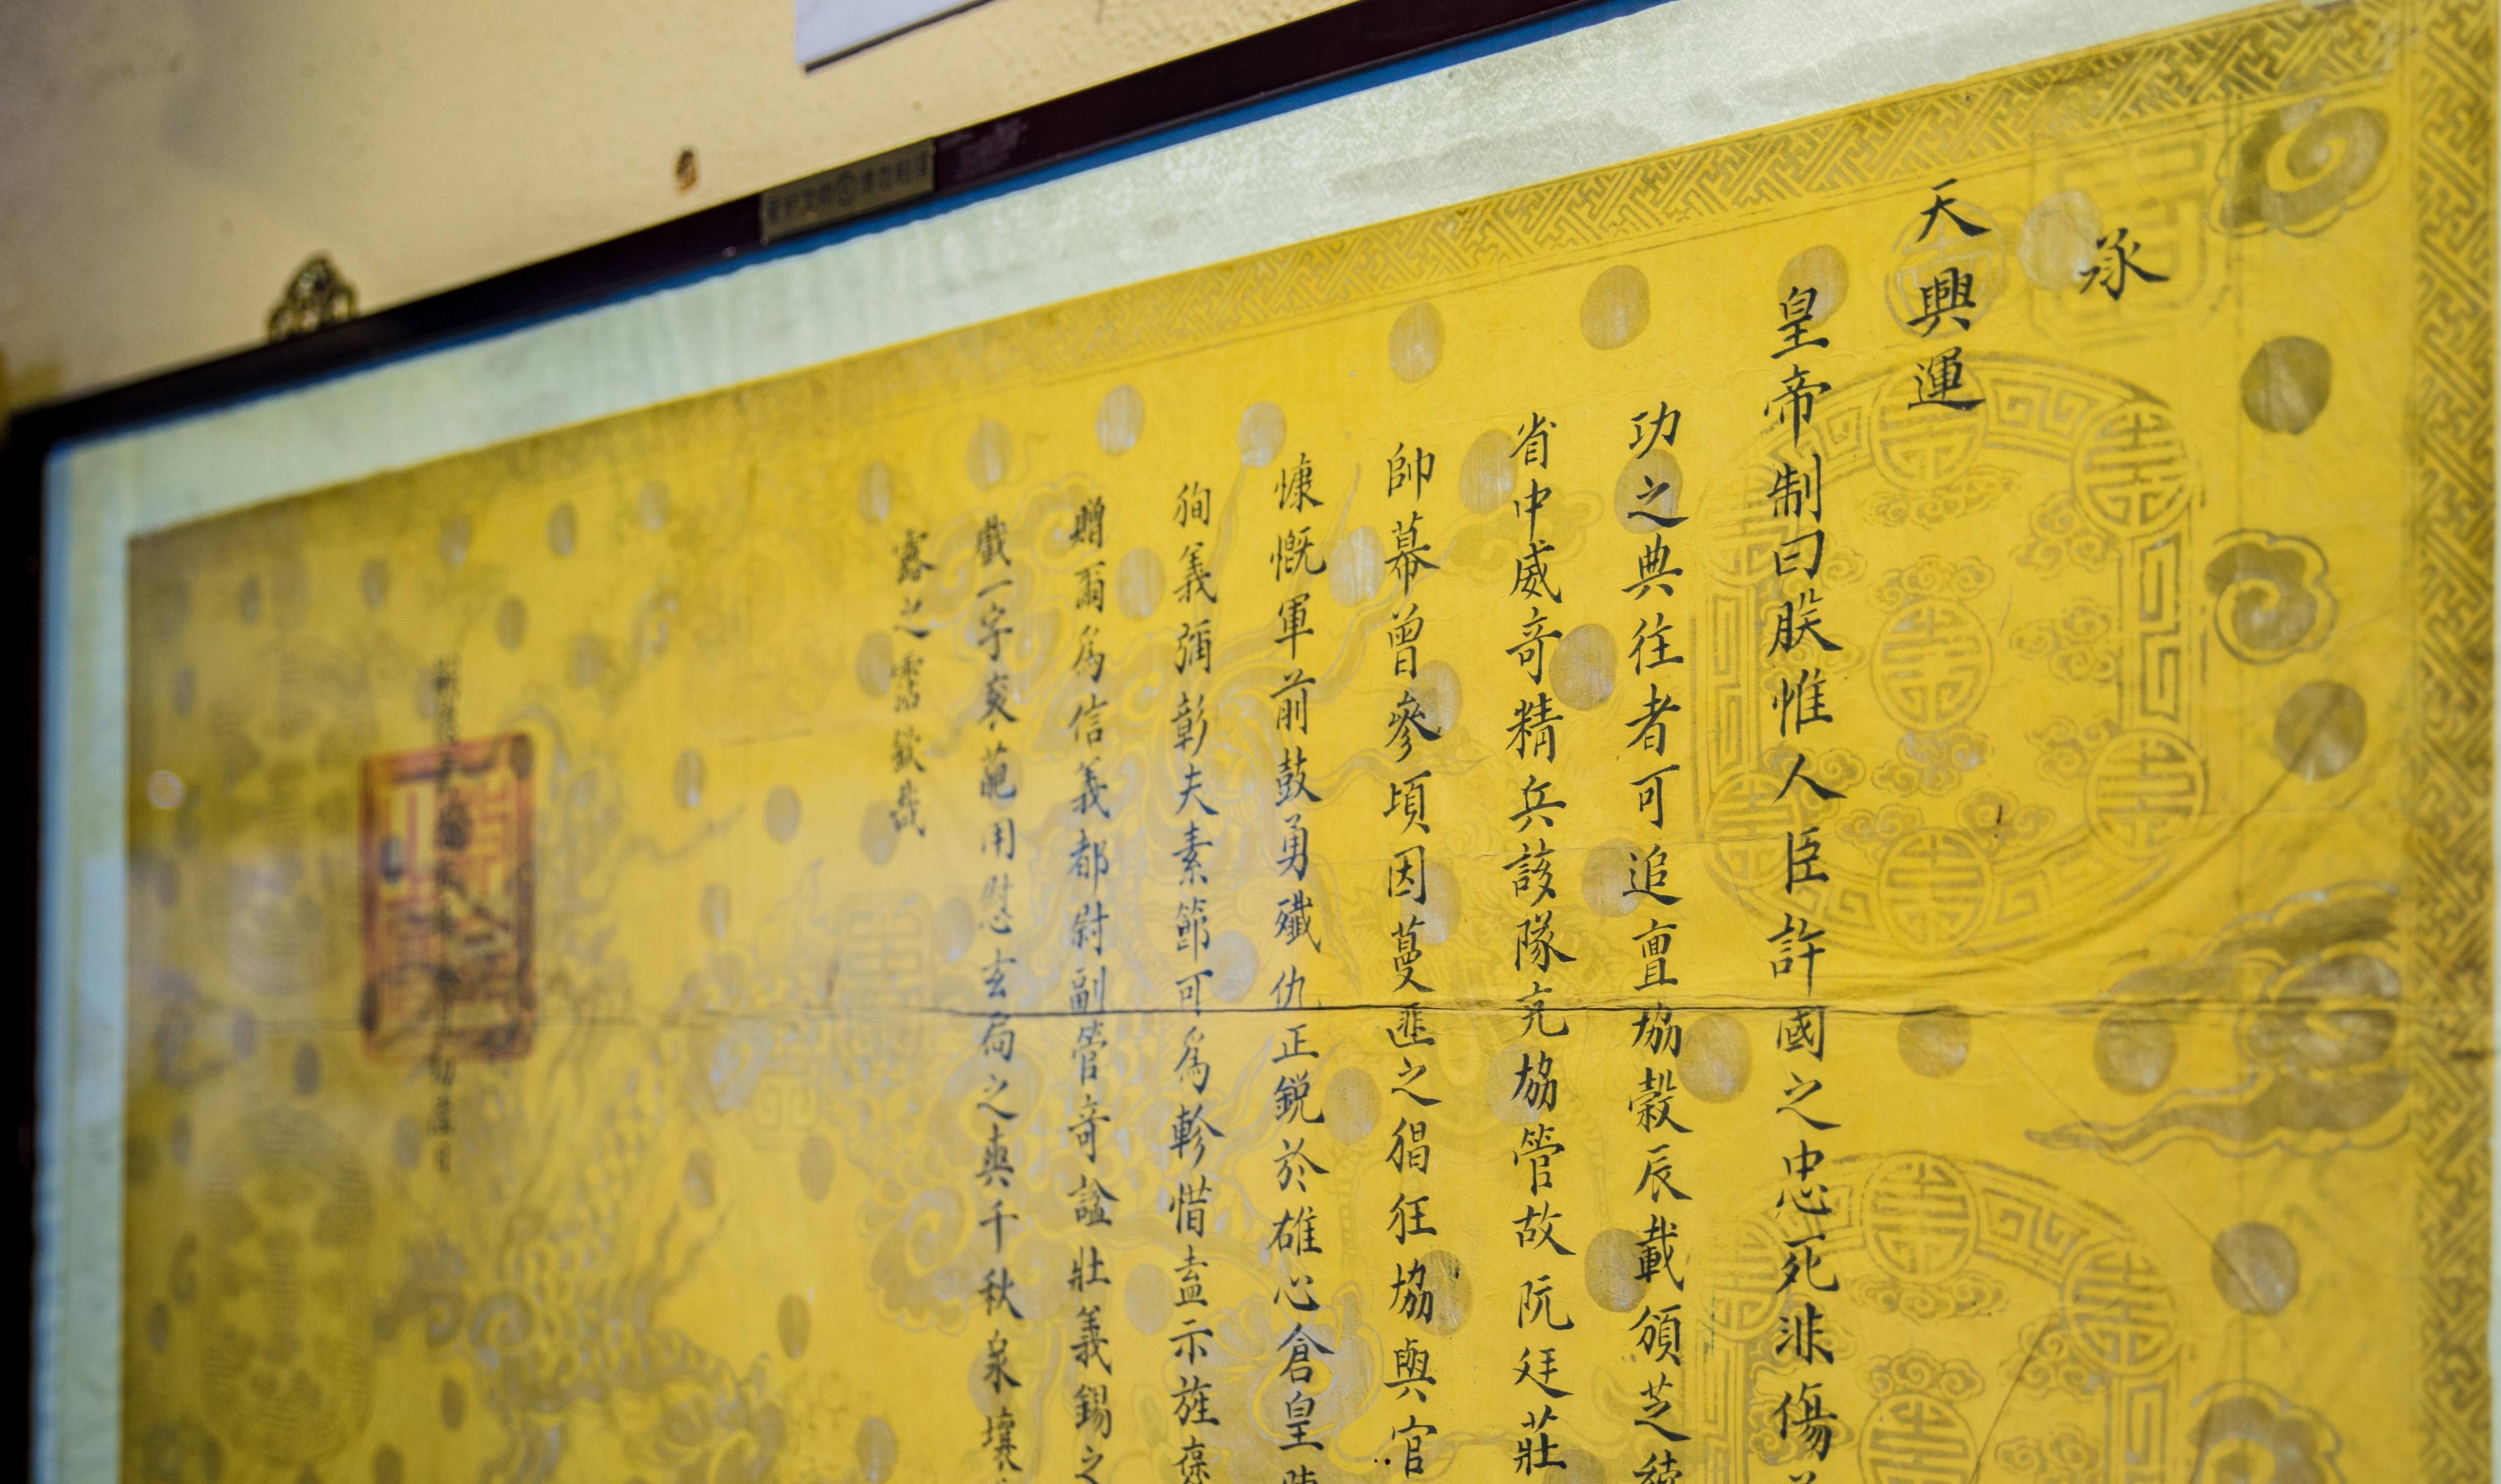 承
天興運
皇帝制曰朕惟人臣許國之忠死非傷
功之典往者可追亶協穀辰載頒芝綍
省中威奇精兵該隊充協管故阮廷莊
帥幕曾參頃因蔓匪之猖狂協與官
慷慨軍前鼓勇殲仇正銳於雄心倉皇
殉義彌彰夫素節可為軫惜盍示旌褒
贈爾為信義都尉副管奇諡壯義錫之
戲一字衮葩用慰玄局之爽千秋泉壤
露之霑欽哉